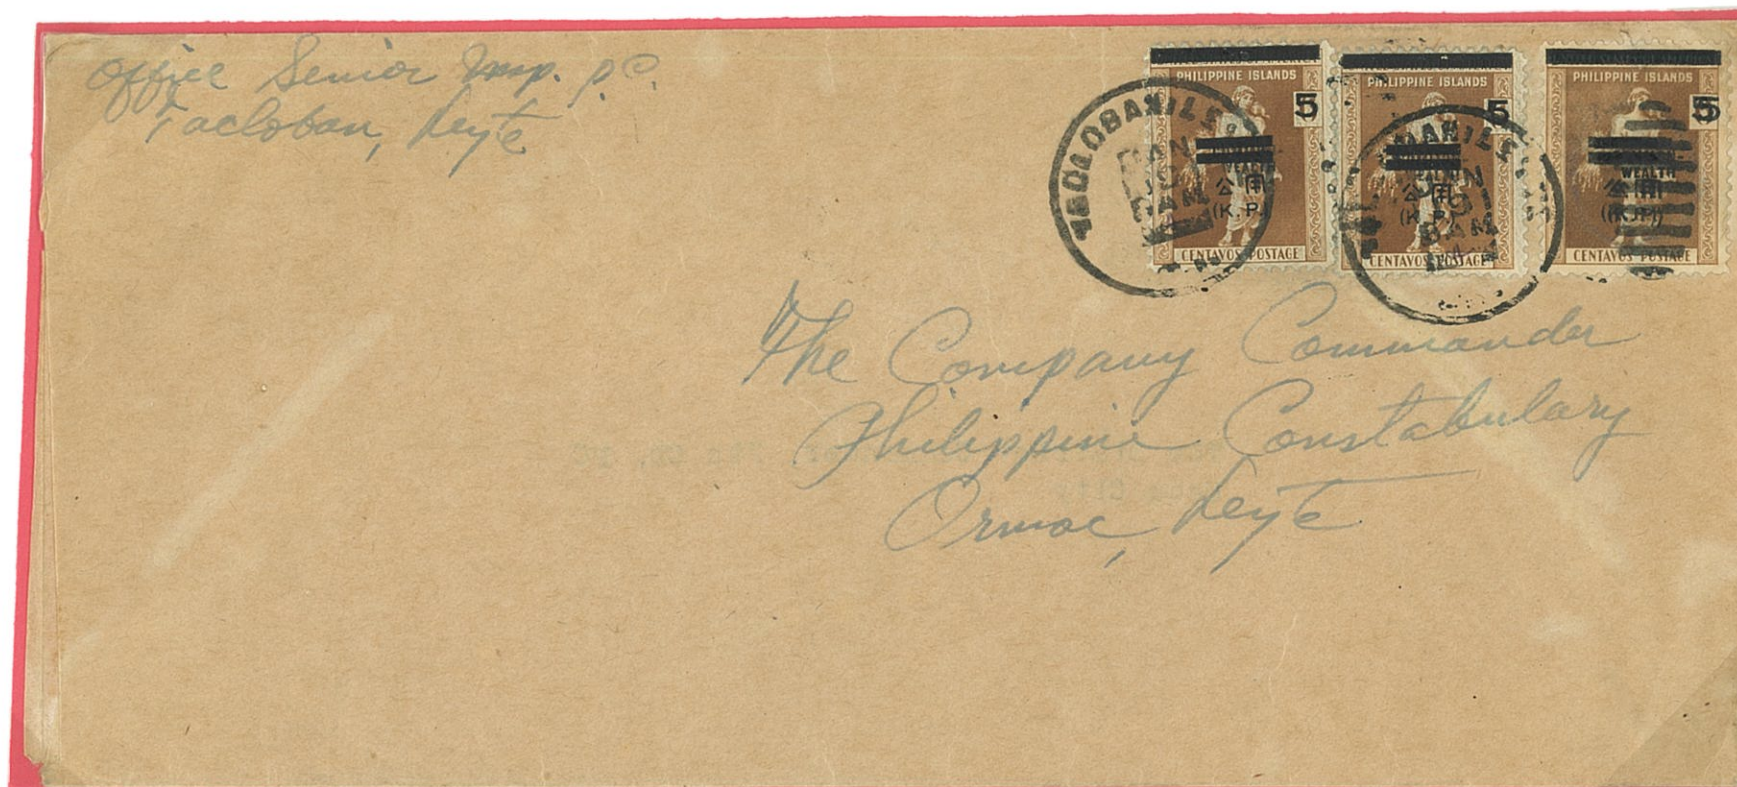 Office Senior Insp. P.C.
Tacloban, Leyte
PHILIPPINE ISLANDS
5
公用
(K. P.)
CENTAVOS POSTAGE
PHILIPPINE ISLANDS
5
公用
(K. P.)
CENTAVOS POSTAGE
PHILIPPINE ISLANDS
5
WEALTH
公用
(K. P.)
CENTAVOS POSTAGE
TACLOBAN
JAN
AM
JAN
8 AM
The Company Commander
Philippine Constabulary
Ormoc, Leyte